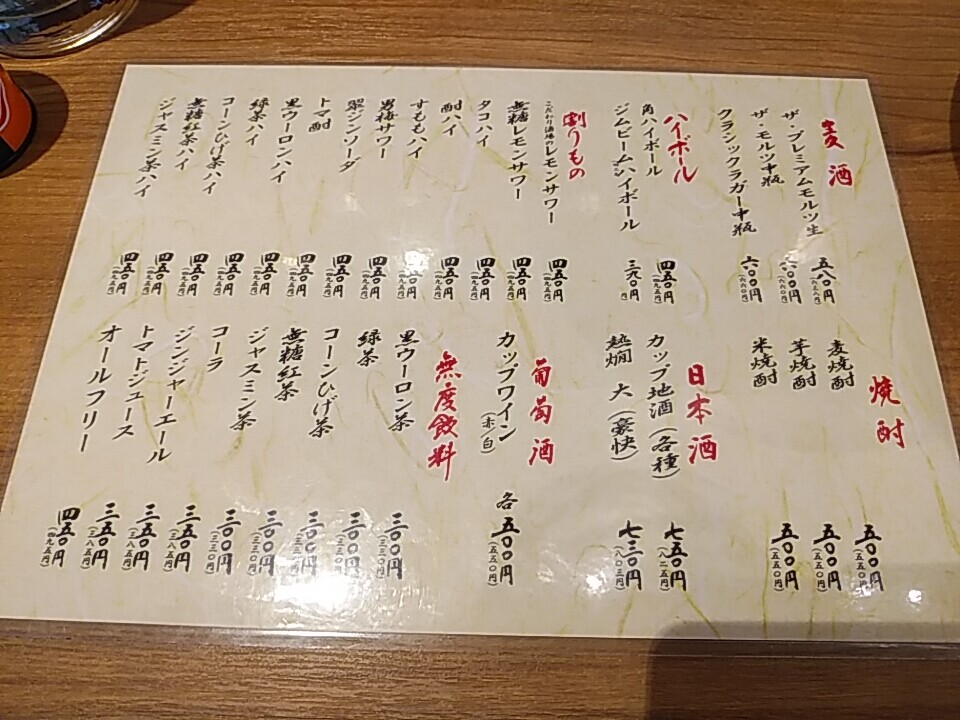 麦酒
ザ・プレミアムモルツ生 五八〇円(六三八円)
ザ・モルツ中瓶 六〇〇円(六六〇円)
クラシックラガー中瓶 六〇〇円(六六〇円)
ハイボール
角ハイボール 四五〇円(四九五円)
ジムビームハイボール 三九〇円
割りもの
こだわり酒場のレモンサワー 四五〇円(四九五円)
無糖レモンサワー 四五〇円(四九五円)
タコハイ 四五〇円(四九五円)
酎ハイ 四五〇円(四九五円)
すももハイ 四五〇円(四九五円)
男梅サワー 四五〇円(四九五円)
翠ジンソーダ 四五〇円(四九五円)
トマ酎 四五〇円(四九五円)
黒ウーロンハイ 四五〇円(四九五円)
緑茶ハイ 四五〇円(四九五円)
コーンひげ茶ハイ 四五〇円(四九五円)
無糖紅茶ハイ 四五〇円(四九五円)
ジャスミン茶ハイ 四五〇円(四九五円)
焼酎
麦焼酎 五〇〇円(五五〇円)
芋焼酎 五〇〇円(五五〇円)
米焼酎 五〇〇円(五五〇円)
日本酒
カップ地酒(各種) 七五〇円(八二五円)
熱燗 大(豪快) 七三〇円(八〇三円)
葡萄酒
カップワイン(赤/白) 各五〇〇円(五五〇円)
無度飲料
黒ウーロン茶 三〇〇円(三三〇円)
緑茶 三〇〇円(三三〇円)
コーンひげ茶 三〇〇円(三三〇円)
無糖紅茶 三〇〇円(三三〇円)
ジャスミン茶 三〇〇円(三三〇円)
コーラ 三五〇円(三八五円)
ジンジャーエール 三五〇円(三八五円)
トマトジュース 三五〇円(三八五円)
オールフリー 四五〇円(四九五円)